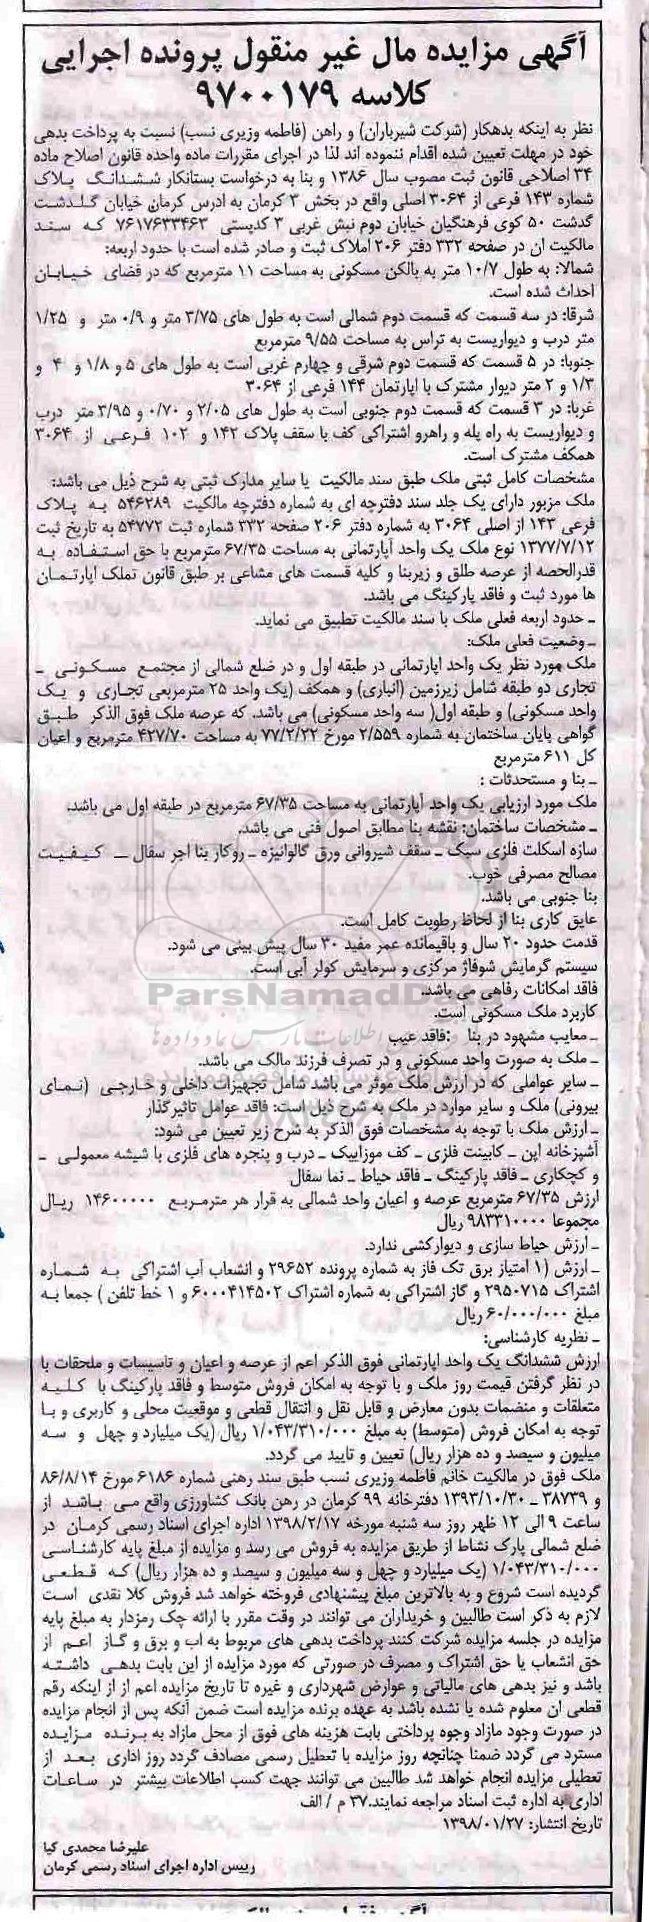 آگهی مزایده مال غیر منقول پرونده اجرایی
کلاسه ۹۷۰۰۱۷۹
نظر به اینکه بدهکار (شرکت شیرباران) و راهن (فاطمه وزیری نسب) نسبت به پرداخت بدهی
خود در مهلت تعیین شده اقدام ننموده اند لذا در اجرای مقررات ماده واحده قانون اصلاح ماده
۳۴ اصلاحی قانون ثبت مصوب سال ۱۳۸۶ و بنا به درخواست بستانکار ششدانگ پلاک
شماره ۱۴۳ فرعی از ۳۰۶۴ اصلی واقع در بخش ۳ کرمان به ادرس کرمان خیابان گلدشت
گدشت ۵۰ کوی فرهنگیان خیابان دوم نبش غربی ۳ کدپستی ۷۶۱۷۶۳۳۴۶۳ که سند
مالکیت ان در صفحه ۳۳۲ دفتر ۲۰۶ املاک ثبت و صادر شده است با حدود اربعه:
شمالا: به طول ۱۰/۷ متر به بالکن مسکونی به مساحت ۱۱ مترمربع که در فضای خیابان
احداث شده است.
شرقا: در سه قسمت که قسمت دوم شمالی است به طول های ۳/۷۵ متر و ۰/۹ متر و ۱/۲۵
متر درب و دیواریست به تراس به مساحت ۹/۵۵ مترمربع
جنوبا: در ۵ قسمت که قسمت دوم شرقی و چهارم غربی است به طول های ۵ و ۱/۸ و ۴ و
۱/۳ و ۲ متر دیوار مشترک با اپارتمان ۱۴۴ فرعی از ۳۰۶۴
غربا: در ۳ قسمت که قسمت دوم جنوبی است به طول های ۲/۰۵ و ۰/۷۰ و ۳/۹۵ متر درب
و دیواریست به راه پله و راهرو اشتراکی کف با سقف پلاک ۱۴۲ و ۱۰۲ فرعی از ۳۰۶۴
همکف مشترک است.
مشخصات کامل ثبتی ملک طبق سند مالکیت یا سایر مدارک ثبتی به شرح ذیل می باشد:
ملک مزبور دارای یک جلد سند دفترچه ای به شماره دفترچه مالکیت ۵۴۶۲۸۹ به پلاک
فرعی ۱۴۳ از اصلی ۳۰۶۴ به شماره دفتر ۲۰۶ صفحه ۳۳۲ شماره ثبت ۵۴۷۷۲ به تاریخ ثبت
۱۳۷۷/۷/۱۲ نوع ملک یک واحد آپارتمانی به مساحت ۶۷/۳۵ مترمربع با حق استفاده به
قدرالحصه از عرصه طلق و زیربنا و کلیه قسمت های مشاعی بر طبق قانون تملک اپارتمان
ها مورد ثبت و فاقد پارکینگ می باشد.
ـ حدود اربعه فعلی ملک با سند مالکیت تطبیق می نماید.
ـ وضعیت فعلی ملک:
ملک مورد نظر یک واحد اپارتمانی در طبقه اول و در ضلع شمالی از مجتمع مسکونی ـ
تجاری دو طبقه شامل زیرزمین (انباری) و همکف (یک واحد ۲۵ مترمربعی تجاری و یک
واحد مسکونی) و طبقه اول( سه واحد مسکونی) می باشد. که عرصه ملک فوق الذکر طبق
گواهی پایان ساختمان به شماره ۲/۵۵۹ مورخ ۷۷/۲/۲۲ به مساحت ۴۲۷/۷۰ مترمربع و اعیان
کل ۶۱۱ مترمربع
ـ بنا و مستحدثات :
ملک مورد ارزیابی یک واحد آپارتمانی به مساحت ۶۷/۳۵ مترمربع در طبقه اول می باشد.
ـ مشخصات ساختمان: نقشه بنا مطابق اصول فنی می باشد.
سازه اسکلت فلزی سبک ـ سقف شیروانی ورق گالوانیزه ـ روکار بنا اجر سفال ـ کیفیت
مصالح مصرفی خوب.
بنا جنوبی می باشد.
عایق کاری بنا از لحاظ رطوبت کامل است.
قدمت حدود ۲۰ سال و باقیمانده عمر مفید ۳۰ سال پیش بینی می شود.
سیستم گرمایش شوفاژ مرکزی و سرمایش کولر آبی است.
فاقد امکانات رفاهی می باشد.
ParsNamadData
کاربرد ملک مسکونی است.
ـ معایب مشهود در بنا :فاقد عیب
ـ ملک به صورت واحد مسکونی و در تصرف فرزند مالک می باشد.
ـ سایر عواملی که در ارزش ملک موثر می باشد شامل تجهیزات داخلی و خارجی (نمای
بیرونی) ملک و سایر موارد در ملک به شرح ذیل است: فاقد عوامل تاثیرگذار
ـ ارزش ملک با توجه به مشخصات فوق الذکر به شرح زیر تعیین می شود:
آشپزخانه اپن ـ کابینت فلزی ـ کف موزاییک ـ درب و پنجره های فلزی با شیشه معمولی ـ
و کچکاری ـ فاقد پارکینگ ـ فاقد حیاط ـ نما سفال
ارزش ۶۷/۳۵ مترمربع عرصه و اعیان واحد شمالی به قرار هر مترمربع ۱۴۶۰۰۰۰۰ ریال
مجموعا ۹۸۳۳۱۰۰۰۰ ریال
ـ ارزش حیاط سازی و دیوارکشی ندارد.
ـ ارزش (۱ امتیاز برق تک فاز به شماره پرونده ۲۹۶۵۲ و انشعاب آب اشتراکی به شماره
اشتراک ۲۹۵۰۷۱۵ و گاز اشتراکی به شماره اشتراک ۶۰۰۰۴۱۴۵۰۲ و ۱ خط تلفن ) جمعا به
مبلغ ۶۰/۰۰۰/۰۰۰ ریال
ـ نظریه کارشناسی:
ارزش ششدانگ یک واحد اپارتمانی فوق الذکر اعم از عرصه و اعیان و تاسیسات و ملحقات با
در نظر گرفتن قیمت روز ملک و با توجه به امکان فروش متوسط و فاقد پارکینگ با کلیه
متعلقات و منضمات بدون معارض و قابل نقل و انتقال قطعی و موقعیت محلی و کاربری و با
توجه به امکان فروش (متوسط) به مبلغ ۱/۰۴۳/۳۱۰/۰۰۰ ریال (یک میلیارد و چهل و سه
میلیون و سیصد و ده هزار ریال) تعیین و تایید می گردد.
ملک فوق در مالکیت خانم فاطمه وزیری نسب طبق سند رهنی شماره ۶۱۸۶ مورخ ۸۶/۸/۱۴
و ۳۸۷۳۹ ـ ۱۳۹۳/۱۰/۳۰ دفترخانه ۹۹ کرمان در رهن بانک کشاورزی واقع می باشد از
ساعت ۹ الی ۱۲ ظهر روز سه شنبه مورخه ۱۳۹۸/۲/۱۷ اداره اجرای اسناد رسمی کرمان در
ضلع شمالی پارک نشاط از طریق مزایده به فروش می رسد و مزایده از مبلغ پایه کارشناسی
۱/۰۴۳/۳۱۰/۰۰۰ (یک میلیارد و چهل و سه میلیون و سیصد و ده هزار ریال) که قطعی
گردیده است شروع و به بالاترین مبلغ پیشنهادی فروخته خواهد شد فروش کلا نقدی است
لازم به ذکر است طالبین و خریداران می توانند در وقت مقرر با ارائه چک رمزدار به مبلغ پایه
مزایده در جلسه مزایده شرکت کنند پرداخت بدهی های مربوط به اب و برق و گاز اعم از
حق انشعاب یا حق اشتراک و مصرف در صورتی که مورد مزایده از این بابت بدهی داشته
باشد و نیز بدهی های مالیاتی و عوارض شهرداری و غیره تا تاریخ مزایده اعم از از اینکه رقم
قطعی ان معلوم شده یا نشده باشد به عهده برنده مزایده است ضمن آنکه پس از انجام مزایده
در صورت وجود مازاد وجوه پرداختی بابت هزینه های فوق از محل مازاد به برنده مزایده
مسترد می گردد ضمنا چنانچه روز مزایده با تعطیل رسمی مصادف گردد روز اداری بعد از
تعطیلی مزایده انجام خواهد شد طالبین می توانند جهت کسب اطلاعات بیشتر در ساعات
اداری به اداره ثبت اسناد مراجعه نمایند.۳۷ م / الف
تاریخ انتشار: ۱۳۹۸/۰۱/۲۷
علیرضا محمدی کیا
رییس اداره اجرای اسناد رسمی کرمان